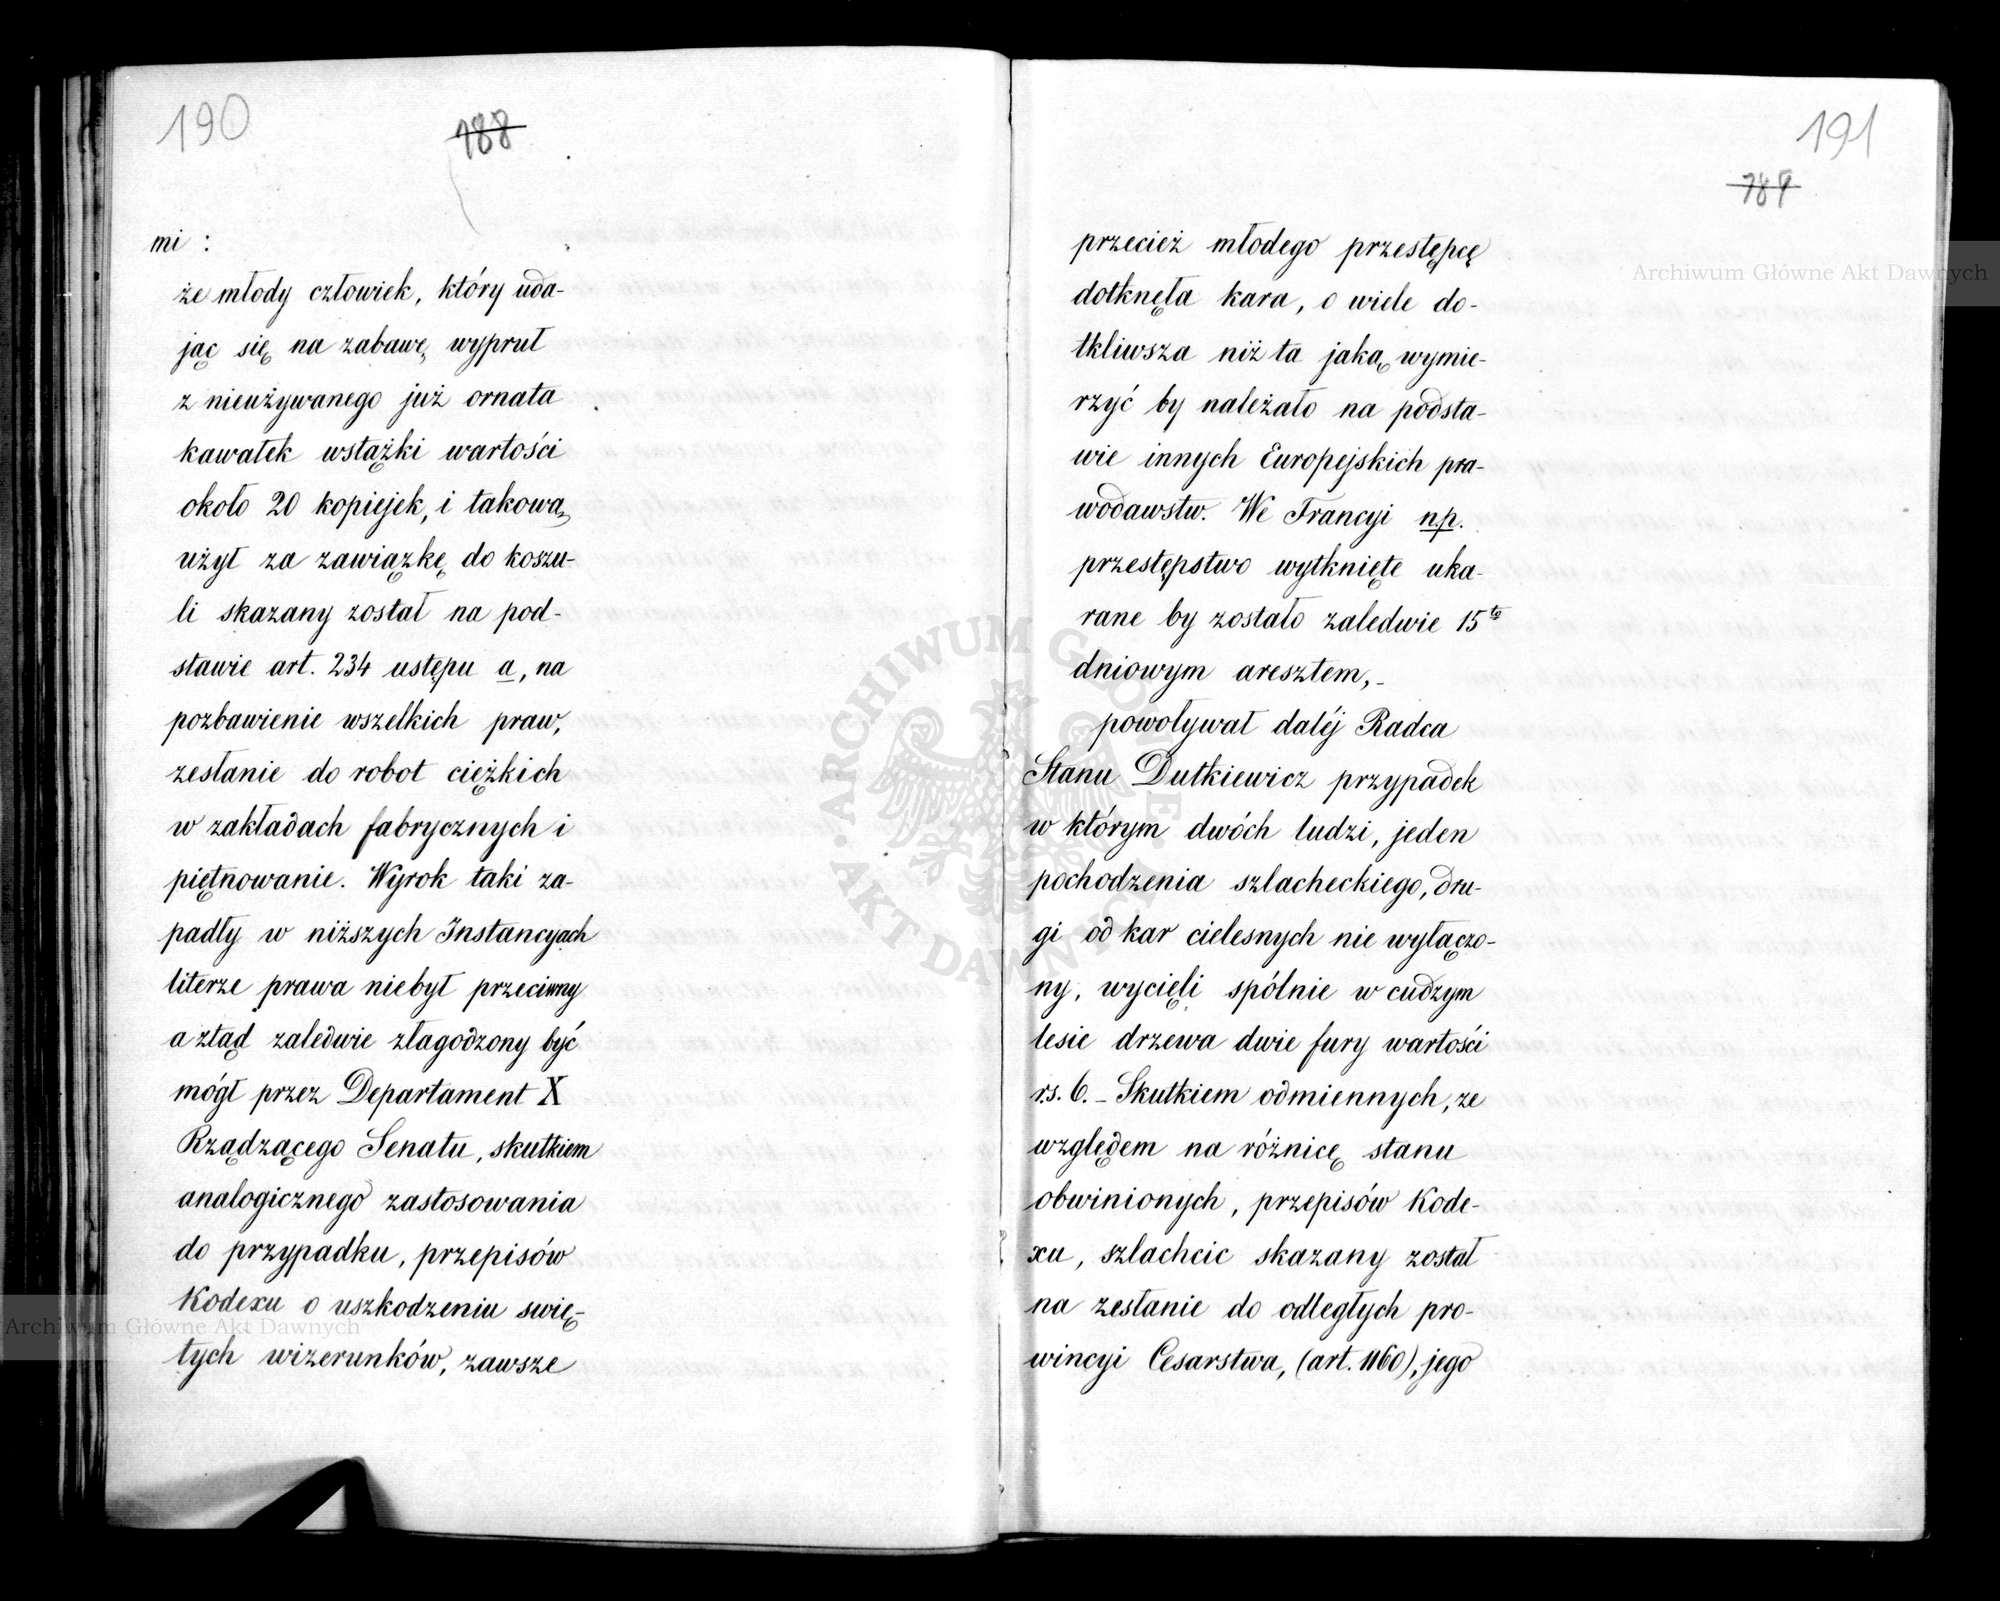 190
188
mi :
że młody człowiek, który uda-
jąc się na zabawę, wypruł
z nieużywanego już ornata
kawałek wstążki wartości
około 20 kopiejek, i takową
użył za zawiązkę do koszu-
li skazany został na pod-
stawie art. 234 ustępu a, na
pozbawienie wszelkich praw,
zesłanie do robot ciężkich
w zakładach fabrycznych i
piętnowanie. Wyrok taki za-
padły w niższych Instancyach
literze prawa niebył przeciwny
a ztąd zaledwie złagodzony być
mógł przez Departament X
Rządzącego Senatu, skutkiem
analogicznego zastosowania
do przypadku, przepisów
Kodexu o uszkodzeniu świę-
tych wizerunków, zawsze
191
189
przecież młodego przestępcę
dotknęła kara, o wiele do-
tkliwsza niż ta jaką wymie-
rzyć by należało na podsta-
wie innych Europejskich pra-
wodawstw. We Francyi np.
przestępstwo wytknięte uka-
rane by zostało zaledwie 15to
dniowym aresztem,-
powoływał daléj Radca
Stanu Dutkiewicz przypadek
w którym dwóch ludzi, jeden
pochodzenia szlacheckiego, dru-
gi od kar cielesnych nie wyłączo-
ny, wycięli spólnie w cudzym
lesie drzewa dwie fury wartości
r.s. 6. – Skutkiem odmiennych, ze
względem na różnicę stanu
obwinionych, przepisów Kode-
xu, szlachcic skazany został
na zesłanie do odległych pro-
wincyi Cesarstwa, (art. 1160), jego
Archiwum Główne Akt Dawnych
Archiwum Główne Akt Dawnych
ARCHIWUM GŁÓWNE AKT DAWNYCH